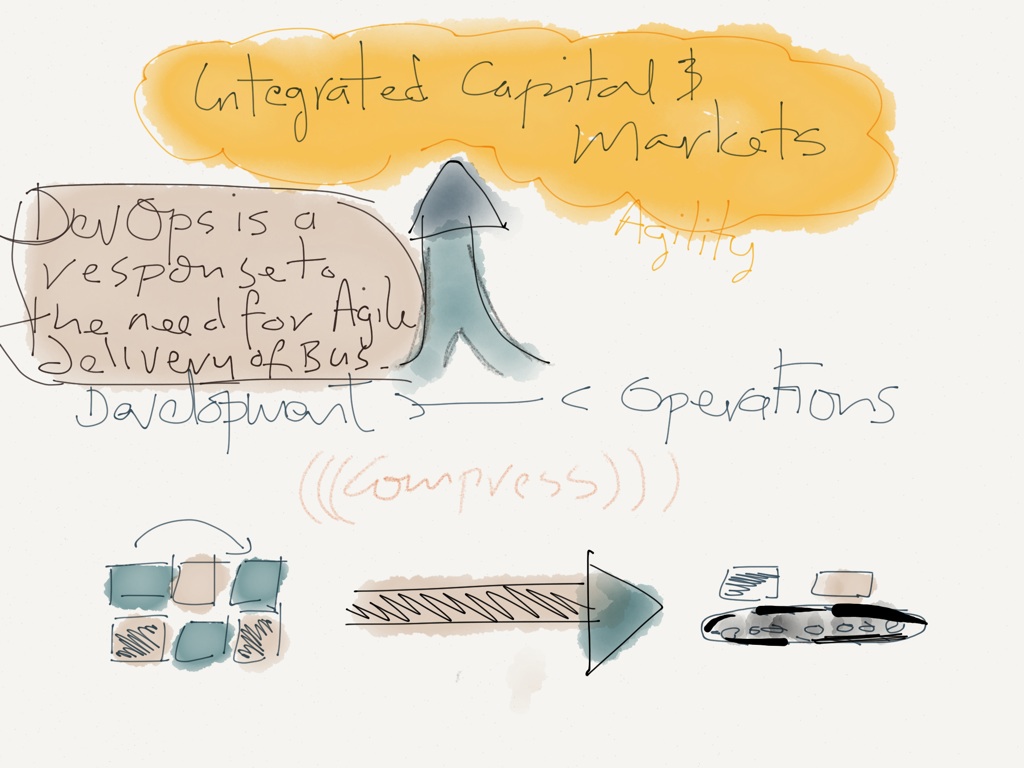 Integrated Capital &
Markets
Agility
DevOps is a
response to
the need for Agile
delivery of Bus.
Development > < Operations
(((Compress)))